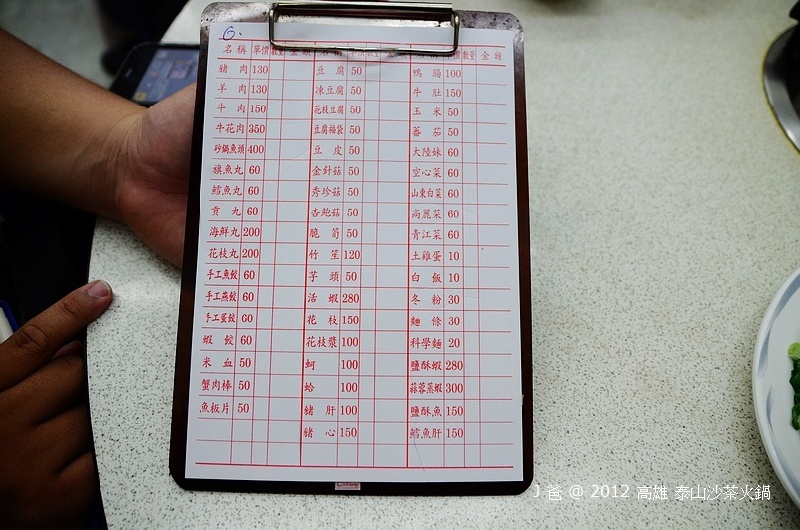 6.
名稱 單價 數量 金額 名稱 單價 數量 金額 名稱 單價 數量 金額
豬肉 130 豆腐 50 鴨腸 100
羊肉 130 凍豆腐 50 牛肚 150
牛肉 150 花枝豆腐 50 玉米 50
牛花肉 350 豆腐福袋 50 蕃茄 50
砂鍋魚頭 400 豆皮 50 大陸妹 60
旗魚丸 60 金針菇 50 空心菜 60
鱈魚丸 60 秀珍菇 50 山東白菜 60
貢丸 60 杏鮑菇 50 高麗菜 60
海鮮丸 200 脆筍 50 青江菜 60
花枝丸 200 竹笙 120 土雞蛋 10
手工魚餃 60 芋頭 50 白飯 10
手工燕餃 60 活蝦 280 冬粉 30
手工蛋餃 60 花枝 150 麵條 30
蝦餃 60 花枝漿 100 科學麵 20
米血 50 蚵 100 鹽酥蝦 280
蟹肉棒 50 蛤 100 蒜蓉蒸蝦 300
魚板片 50 豬肝 100 鹽酥魚 150
豬心 150 鱈魚肝 150
J 爸 @ 2012 高雄 泰山沙茶火鍋